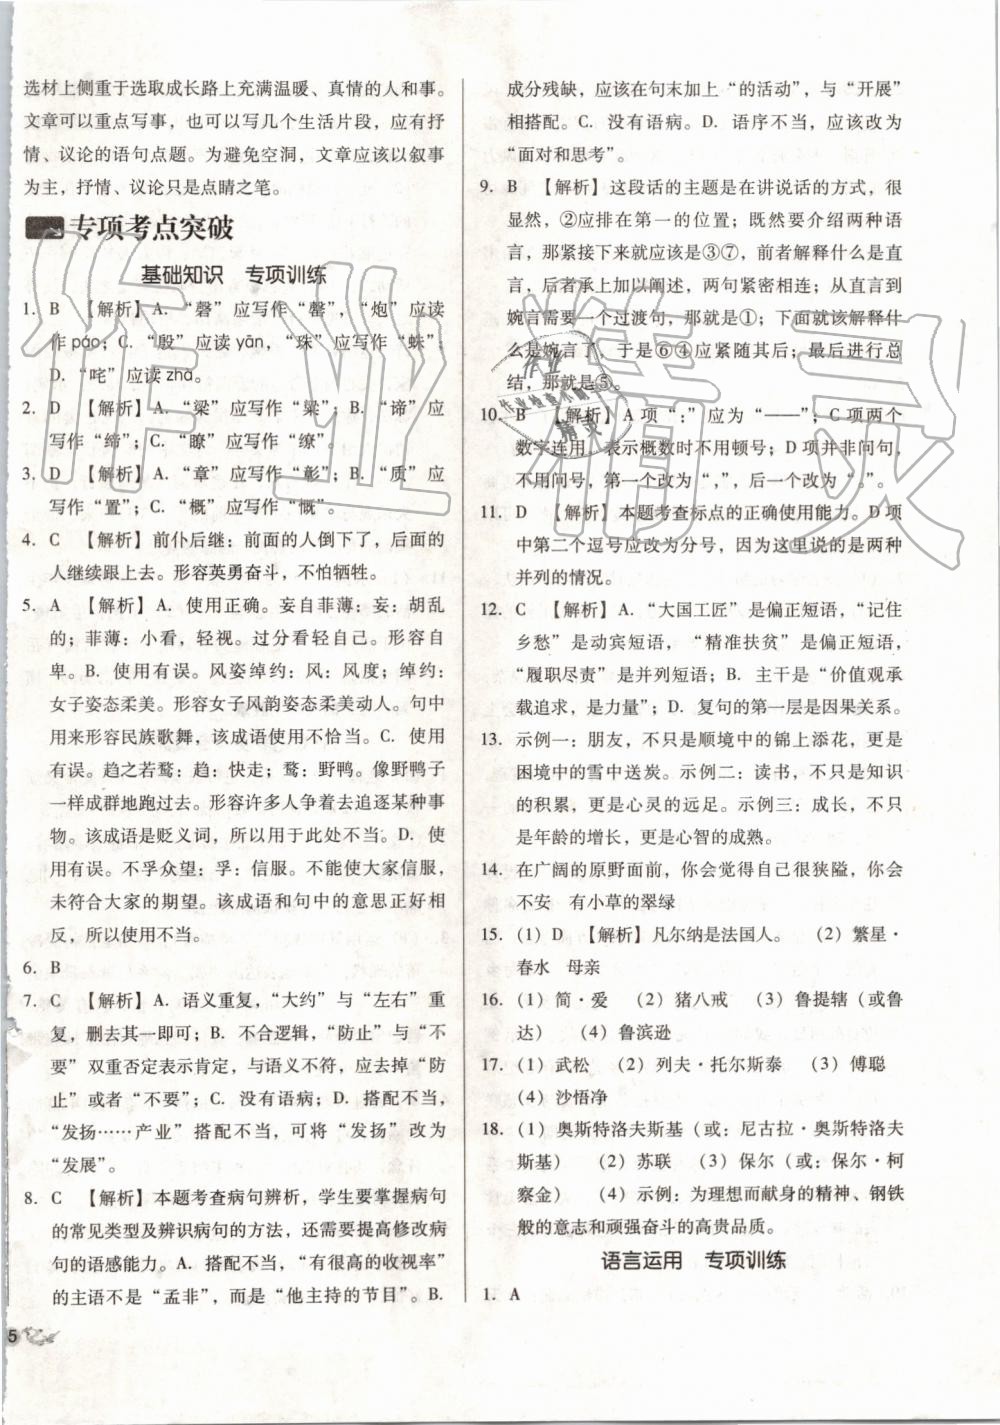 选材上侧重于选取成长路上充满温暖、真情的人和事。
文章可以重点写事，也可以写几个生活片段，应有抒
情、议论的语句点题。为避免空洞，文章应该以叙事
为主，抒情、议论只是点睛之笔。
专项考点突破
基础知识 专项训练
1. B 【解析】A.“磬”应写作“罄”，“炮”应读
作páo；C.“殷”应读 yān，“珠”应写作“蛛”；
D.“咤”应读 zhà。
2. D 【解析】A.“梁”应写作“粱”；B.“谛”应
写作“缔”；C.“瞭”应写作“缭”。
3. D 【解析】A.“章”应写作“彰”；B.“质”应
写作“置”；C.“概”应写作“慨”。
4. C 【解析】前仆后继：前面的人倒下了，后面的
人继续跟上去。形容英勇奋斗，不怕牺牲。
5. A 【解析】A. 使用正确。妄自菲薄：妄：胡乱
的；菲薄：小看，轻视。过分看轻自己。形容自
卑。B. 使用有误。风姿绰约：风：风度；绰约：
女子姿态柔美。形容女子风韵姿态柔美动人。句中
用来形容民族歌舞，该成语使用不当。C. 使用
有误。趋之若鹜：趋：快走；鹜：野鸭。像野鸭子
一样成群地跑过去。形容许多人去追逐某种事
物。该成语是贬义词，所以用于此处不当。D. 使
用有误。不孚众望：孚：信服。不能使大家信服，
未符合大家的期望。该成语和句中的意思正好相
反，所以使用不当。
6. B
7. C 【解析】A. 语义重复，“大约”与“左右”重
复，删去其一即可；B. 不合逻辑，“防止”与“不
要”双重否定表示肯定，与语义不符，应去掉“防
止”或者“不要”；C. 没有语病；D. 搭配不当，
“发扬……产业”搭配不当，可将“发扬”改为
“发展”。
8. C 【解析】本题考查病句辨析，学生要掌握病句
的常见类型及辨识病句的方法，还需要提高修改病
句的语感能力。A. 搭配不当，“有很高的收视率”
的主语不是“孟非”，而是“他主持的节目”。B.
5
成分残缺，应该在句末加上“的活动”，与“开展”
相搭配。C. 没有语病。D. 语序不当，应该改为
“面对和思考”。
9. B 【解析】这段话的主题是在讲说话的方式，很
显然，②应排在第一的位置；既然要介绍两种语
言，那紧接下来就应该是③⑦，前者解释什么是
直言，后者加以阐述，两句紧密相连；从直言到
婉言需要一个过渡句，那就是①；下面就该解释什
么是婉言了，于是⑥④应紧随其后；最后进行总
结，那就是⑤。
10. B 【解析】A 项“：”应为“——”；C 项两个
数字连用，表示概数时不用顿号；D 项并非问句，
不用问号，第一个改为“，”，后一个改为“。”。
11. D 【解析】本题考查标点的正确使用能力。D 项
中第二个逗号应改为分号，因为这里说的是两种
并列的情况。
12. C 【解析】A.“大国工匠”是偏正短语，“记住
乡愁”是动宾短语，“精准扶贫”是偏正短语，
“履职尽责”是并列短语；B. 主干是“价值观承
载追求，是力量”；D. 复句的第一层是因果关系。
13. 示例一：朋友，不只是顺境中的锦上添花，更是
困境中的雪中送炭。示例二：读书，不只是知识
的积累，更是心灵的远足。示例三：成长，不只
是年龄的增长，更是心智的成熟。
14. 在广阔的原野面前，你会觉得自己很狭隘，你会
不安 有小草的翠绿
15. (1) D 【解析】凡尔纳是法国人。 (2) 繁星·
春水 母亲
16. (1) 简·爱 (2) 猪八戒 (3) 鲁提辖（或鲁
达） (4) 鲁滨逊
17. (1) 武松 (2) 列夫·托尔斯泰 (3) 傅聪
(4) 沙悟净
18. (1) 奥斯特洛夫斯基（或：尼古拉·奥斯特洛夫
斯基） (2) 苏联 (3) 保尔（或：保尔·柯
察金） (4) 示例：为理想而献身的精神、钢铁
般的意志和顽强奋斗的高贵品质。
语言运用 专项训练
1. A
作业精灵